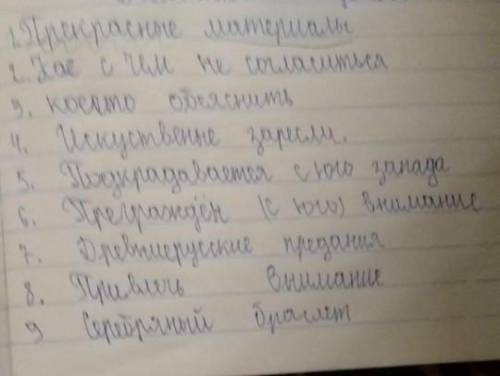 1. Прекрасные материалы
2. Кое с чем не согласиться
3. косото объяснить
4. Искуственные заросли.
5. Подкрадывается с юго запада
6. Преграждён (с юго) внимание
7. Древнерусские предания
8. Привлечь внимание
9 Серебряный браслет